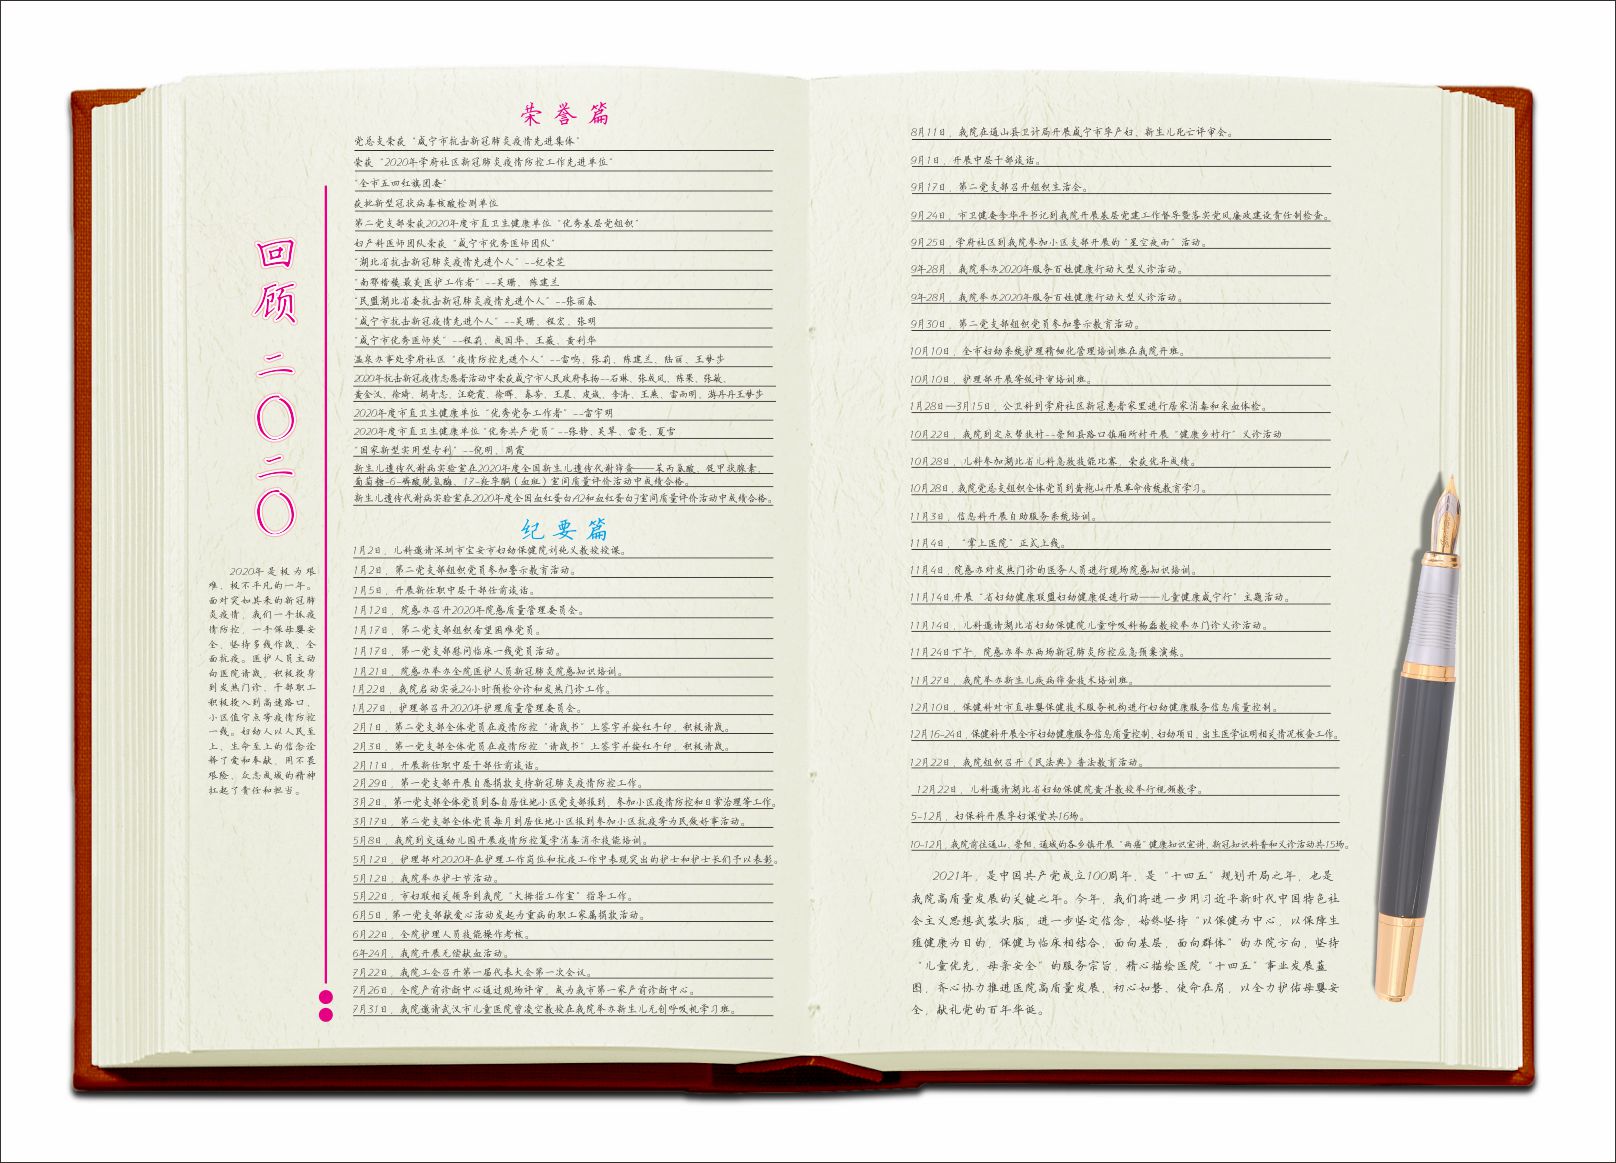 回
顾
二
〇
二
〇
2020年是极为艰
难、极不平凡的一年。
面对突如其来的新冠肺
炎疫情，我们一手抓疫
情防控，一手保母婴安
全，坚持多线作战，全
面抗疫。医护人员主动
向医院请战，积极投身
到发热门诊，干部职工
积极投入到高速路口、
小区值守点等疫情防控
一线。妇幼人以人民至
上、生命至上的信念诠
释了爱和奉献，用不畏
艰险、众志成城的精神
扛起了责任和担当。
荣誉篇
党总支荣获“咸宁市抗击新冠肺炎疫情先进集体”
荣获“2020年学府社区新冠肺炎疫情防控工作先进单位”
“全市五四红旗团委”
获批新型冠状病毒核酸检测单位
第二党支部荣获2020年度市直卫生健康单位“优秀基层党组织”
妇产科医师团队荣获“咸宁市优秀医师团队”
“湖北省抗击新冠肺炎疫情先进个人”--纪荣芝
“南鄂楷模.最美医护工作者”--吴珊、陈建兰
“民盟湖北省委抗击新冠肺炎疫情先进个人”--张丽春
“咸宁市抗击新冠疫情先进个人”--吴珊、程宏、张明
“咸宁市优秀医师奖”--程莉、成国华、王薇、黄利华
温泉办事处学府社区“疫情防控先进个人”--雷鸣、张莉、陈建兰、陆丽、王梦莎
2020年抗击新冠疫情志愿者活动中荣获咸宁市人民政府表扬--石琳、张成凤、陈果、张敏、
黄金汉、徐婧、胡奇志、汪晓霞、徐晖、秦芳、王晨、成诚、李涛、王燕、雷雨明、游丹丹王梦莎
2020年度市直卫生健康单位“优秀党务工作者”--雷宇明
2020年度市直卫生健康单位“优秀共产党员”--张静、吴翠、雷亮、夏雪
“国家新型实用型专利”--倪明、周霞
新生儿遗传代谢病实验室在2020年度全国新生儿遗传代谢筛查——苯丙氨酸、促甲状腺素、
葡萄糖-6-磷酸脱氢酶、17-羟孕酮（血斑）室间质量评价活动中成绩合格。
新生儿遗传代谢病实验室在2020年度全国血红蛋白A2和血红蛋白F室间质量评价活动中成绩合格。
纪要篇
1月2日，儿科邀请深圳市宝安市妇幼保健院刘纯义教授授课。
1月2日，第二党支部组织党员参加警示教育活动。
1月5日，开展新任职中层干部任前谈话。
1月12日，院感办召开2020年院感质量管理委员会。
1月17日，第二党支部组织看望困难党员。
1月17日，第一党支部慰问临床一线党员活动。
1月21日，院感办举办全院医护人员新冠肺炎院感知识培训。
1月22日，我院启动实施24小时预检分诊和发热门诊工作。
1月27日，护理部召开2020年护理质量管理委员会。
2月1日，第二党支部全体党员在疫情防控“请战书”上签字并按红手印，积极请战。
2月3日，第一党支部全体党员在疫情防控“请战书”上签字并按红手印，积极请战。
2月11日，开展新任职中层干部任前谈话。
2月29日，第一党支部开展自愿捐款支持新冠肺炎疫情防控工作。
3月2日，第一党支部全体党员到各自居住地小区党支部报到，参加小区疫情防控和日常治理等工作。
3月17日，第二党支部全体党员每月到居住地小区报到参加小区抗疫等为民做好事活动。
5月8日，我院到交通幼儿园开展疫情防控复学消毒消杀技能培训。
5月12日，护理部对2020年在护理工作岗位和抗疫工作中表现突出的护士和护士长们予以表彰。
5月12日，我院举办护士节活动。
5月22日，市妇联相关领导到我院“大拇指工作室”指导工作。
6月5日，第一党支部献爱心活动发起为重病的职工家属捐款活动。
6月22日，全院护理人员技能操作考核。
6年24月，我院开展无偿献血活动。
7月22日，我院工会召开第一届代表大会第一次会议。
7月26日，全院产前诊断中心通过现场评审，成为我市第一家产前诊断中心。
7月31日，我院邀请武汉市儿童医院曾凌空教授在我院举办新生儿无创呼吸机学习班。
8月11日，我院在通山县卫计局开展咸宁市孕产妇、新生儿死亡评审会。
9月1日，开展中层干部谈话。
9月17日，第二党支部召开组织生活会。
9月24日，市卫健委李华平书记到我院开展基层党建工作督导暨落实党风廉政建设责任制检查。
9月25日，学府社区到我院参加小区支部开展的“星空夜雨”活动。
9年28月，我院举办2020年服务百姓健康行动大型义诊活动。
9年28月，我院举办2020年服务百姓健康行动大型义诊活动。
9月30日，第二党支部组织党员参加警示教育活动。
10月10日，全市妇幼系统护理精细化管理培训班在我院开班。
10月10日，护理部开展等级评审培训班。
1月28日—3月15日，公卫科到学府社区新冠患者家里进行居家消毒和采血体检。
10月22日，我院到定点帮扶村--崇阳县路口镇厢所村开展“健康乡村行”义诊活动
10月28日，儿科参加湖北省儿科急救技能比赛，荣获优异成绩。
10月28日，我院党总支组织全体党员到黄袍山开展革命传统教育学习。
11月3日，信息科开展自助服务系统培训。
11月4日，“掌上医院”正式上线。
11月4日，院感办对发热门诊的医务人员进行现场院感知识培训。
11月14日，开展“省妇幼健康联盟妇幼健康促进行动——儿童健康咸宁行”主题活动。
11月14日，儿科邀请湖北省妇幼保健院儿童呼吸科杨磊教授举办门诊义诊活动。
11月24日下午，院感办举办两场新冠肺炎防控应急预案演练。
11月27日，我院举办新生儿疾病筛查技术培训班。
12月10日，保健科对市直母婴保健技术服务机构进行妇幼健康服务信息质量控制。
12月16-24日，保健科开展全市妇幼健康服务信息质量控制、妇幼项目、出生医学证明相关情况核查工作。
12月22日，我院组织召开《民法典》普法教育活动。
12月22日，儿科邀请湖北省妇幼保健院黄洋教授举行视频教学。
5-12月，妇保科开展孕妇课堂共16场。
10-12月，我院前往通山、崇阳、通城的各乡镇开展“两癌”健康知识宣讲、新冠知识科普和义诊活动共15场。
2021年，是中国共产党成立100周年，是“十四五”规划开局之年，也是
我院高质量发展的关键之年。今年，我们将进一步用习近平新时代中国特色社
会主义思想武装头脑，进一步坚定信念，始终坚持“以保健为中心，以保障生
殖健康为目的，保健与临床相结合，面向基层，面向群体”的办院方向，坚持
“儿童优先，母亲安全”的服务宗旨，精心描绘医院“十四五”事业发展蓝
图，齐心协力推进医院高质量发展，初心如磐，使命在肩，以全力护佑母婴安
全，献礼党的百年华诞。